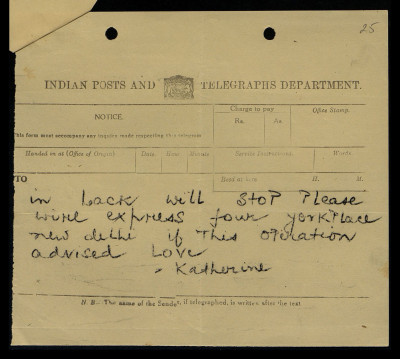 25
INDIAN POSTS AND TELEGRAPHS DEPARTMENT.
NOTICE.
This form must accompany any inquiry made respecting this telegram
Charge to pay
Rs. As.
Office Stamp.
Handed in at (Office of Origin) Date Hour Minute Service Instructions. Words.
TO
Recd at here H. M.
in back will stop Please
wire express four york Place
new delhi if this operation
advised Love
- Katherine
N. B.—The name of the Sender, if telegraphed, is written after the text.